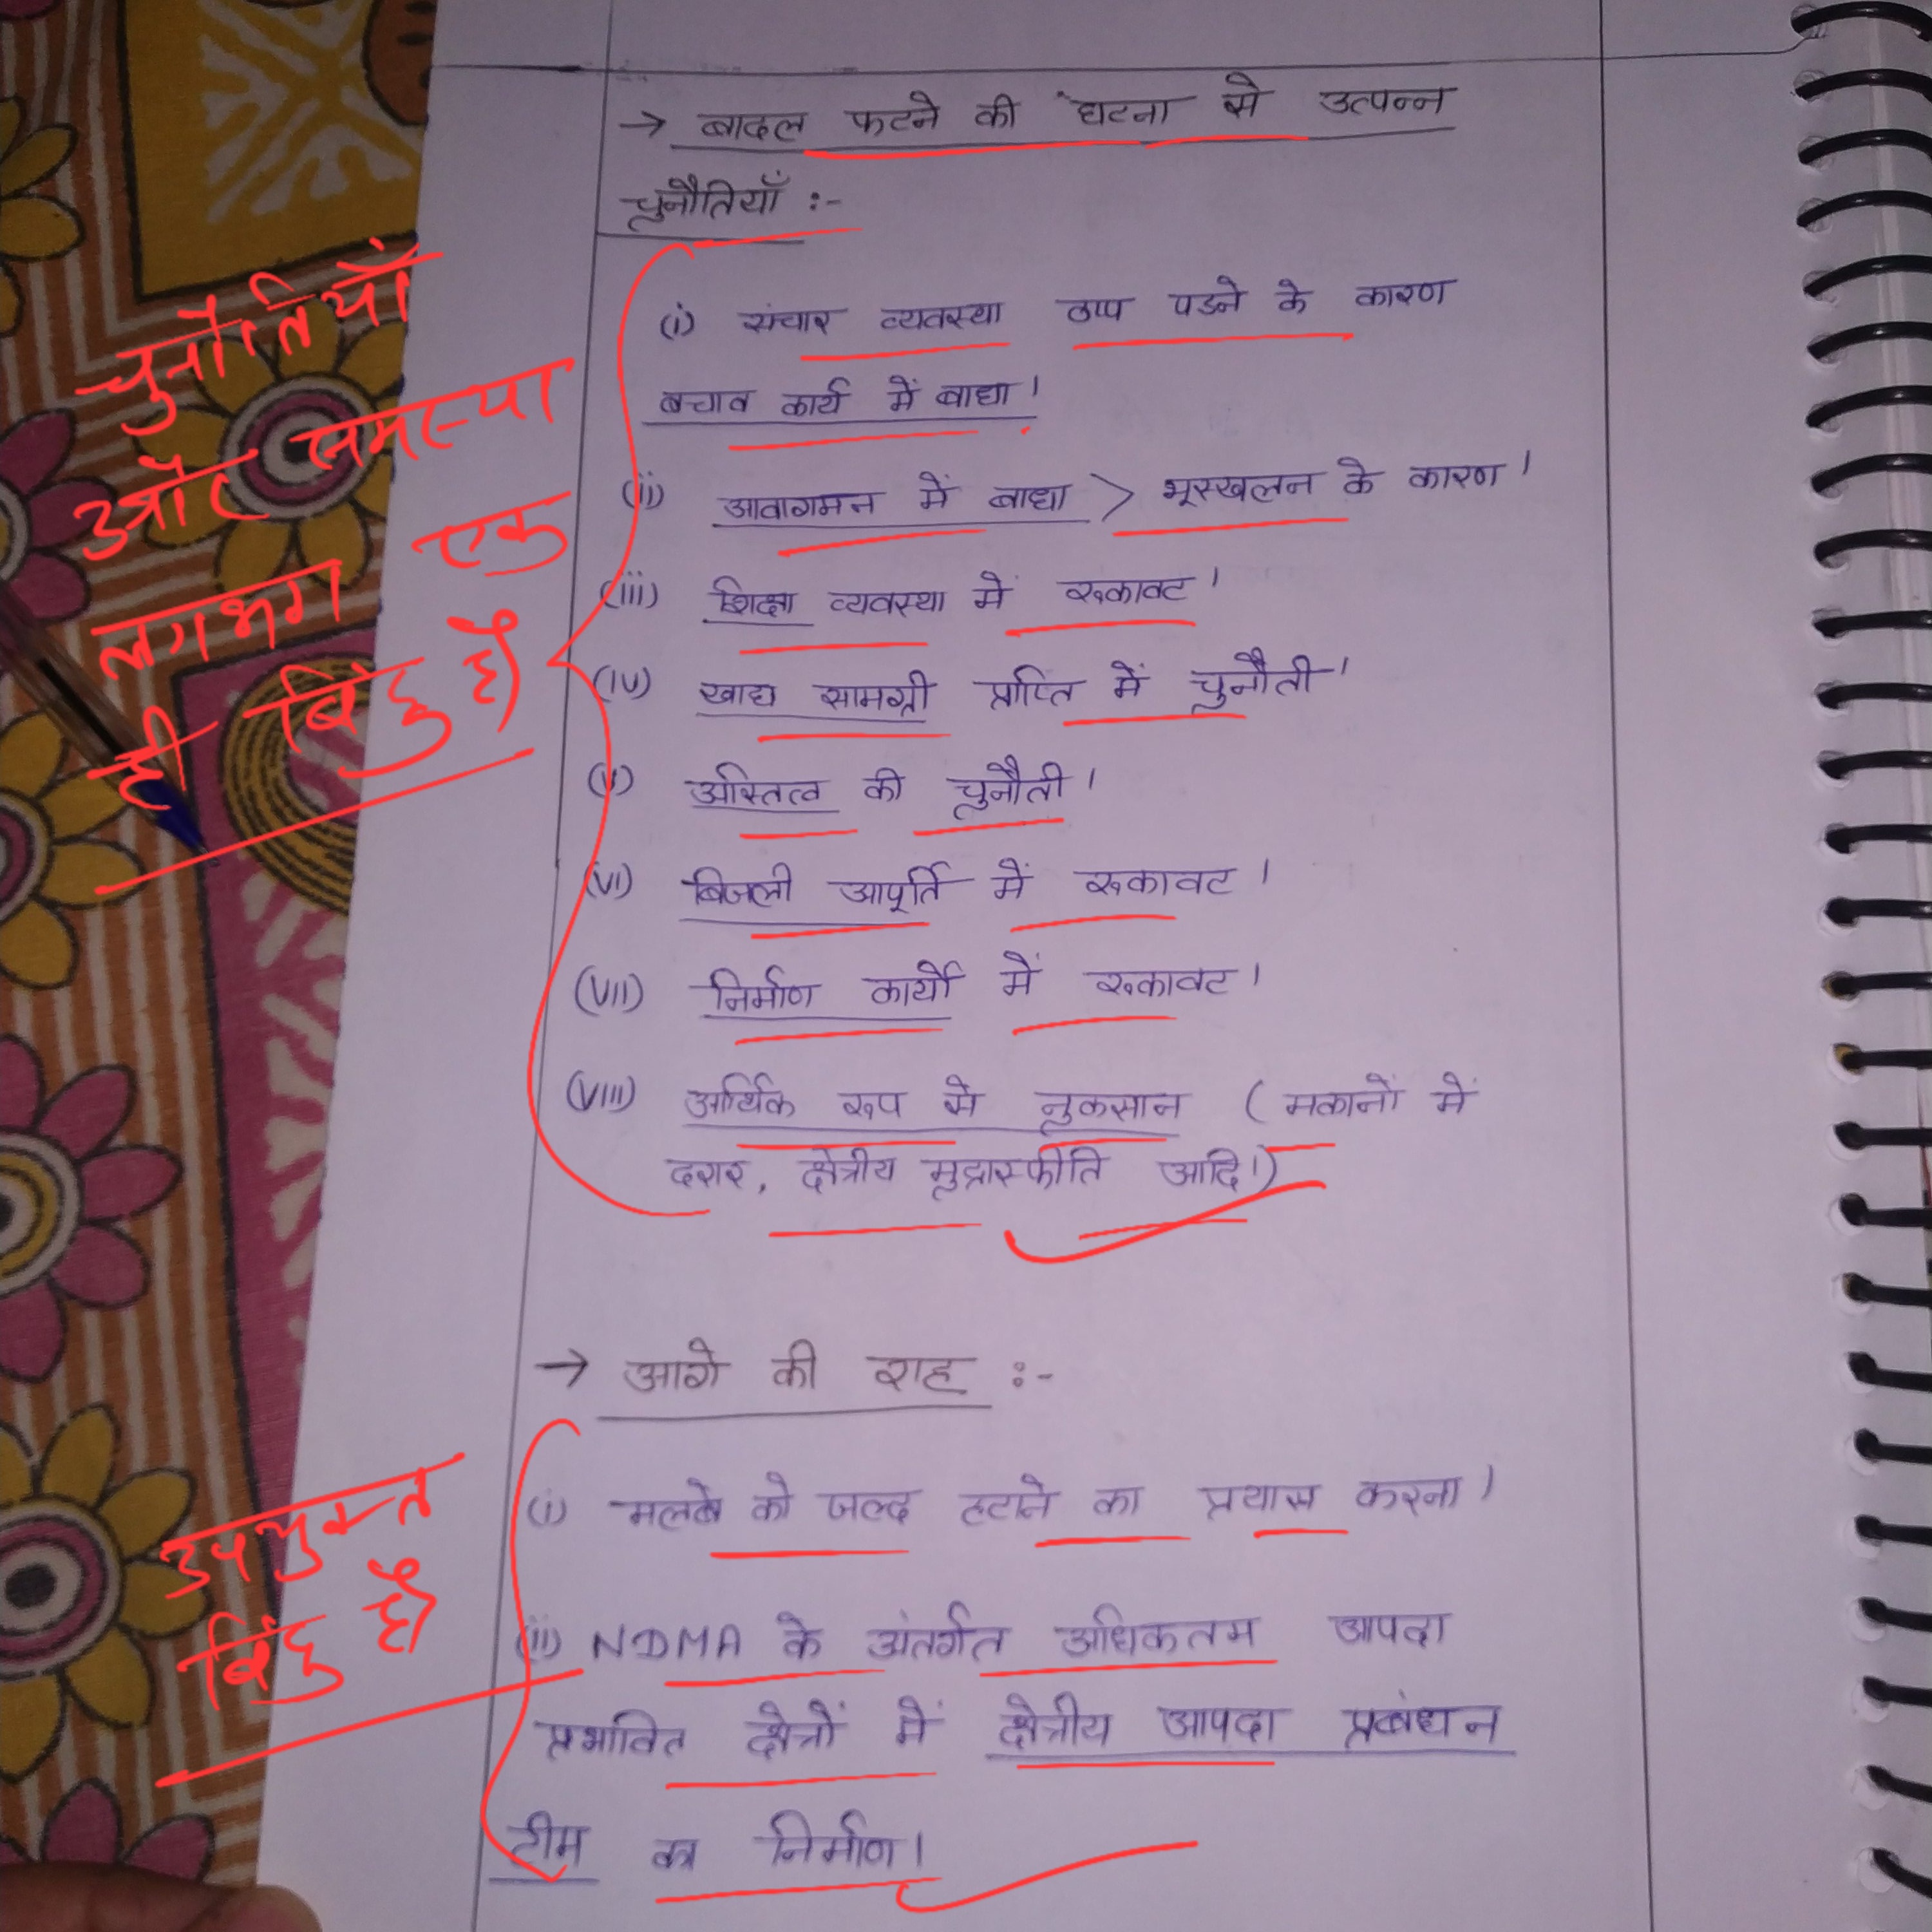 → बादल फटने की घटना से उत्पन्न
चुनौतियाँ :-
(i) संचार व्यवस्था ठप्प पडने के कारण
बचाव कार्य में बाधा।
(ii) आवागमन में बाधा > भूस्खलन के कारण।
(iii) शिक्षा व्यवस्था में रुकावट।
(iv) खाद्य सामग्री प्राप्ति में चुनौती।
(v) अस्तित्व की चुनौती।
(vi) बिजली आपूर्ति में रुकावट।
(vii) निर्माण कार्यो में रुकावट।
(viii) आर्थिक रूप से नुकसान (मकानों में
दरार, क्षेत्रीय मुद्रास्फीति आदि।)
चुनौतियाँ
और समस्या
लगभग एक
ही बिंदु है
→ आगे की राह :-
(i) मलबे को जल्द हटाने का प्रयास करना।
(ii) NDMA के अंतर्गत अधिकतम आपदा
प्रभावित क्षेत्रों में क्षेत्रीय आपदा प्रबंधन
टीम का निर्माण।
उपयुक्त
बिंदु है